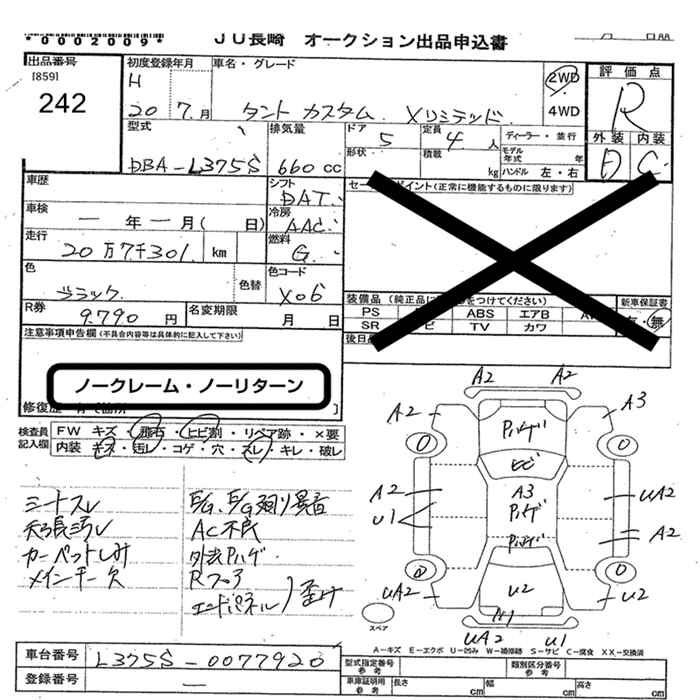 *0002009* JU長崎 オークション出品申込書
出品番号 [859] 242
初度登録年月 H 20 7月
車名・グレード タント カスタム Xリミテッド
2WD 4WD
評価点 R
外装 内装 D C
型式 DBA-L375S
排気量 660cc
ドア 5 形状
定員 4人 積載 kg
ディーラー・並行
モデル年式 年
ハンドル 左・右
車歴
シフト DAT
車検 ー年ー月( 日)
冷房 AAC
走行 20万7千301 km
燃料 G
色 ブラック 色替
色コード X06
R券 9,790円
名変期限 月 日
セールスポイント(正常に機能するものに限ります)
装備品
PS ABS エアB
SR TV カワ
新車保証書 有・無
注意事項申告欄(不具合内容等は具体的に記入して下さい)
ノークレーム・ノーリターン
検査員記入欄
FW キズ・飛石・ヒビ割・リペア跡・×要
内装 キズ・汚レ・コゲ・穴・スレ・キレ・破レ
シートスレ
天張汚レ
カーペットしみ
メインキー欠
E/G、E/G廻り異音
AC不良
外装Pハゲ
Rフロア
エンドパネル )歪み
A2 A2
A2 A3
Pハゲ
ヒビ
A3
Pハゲ
A2 U1
UA2 A2
Pハゲ
UA2 U2 U2
UA2 U1
スペア
A-キズ E-エクボ U-凹み W-補修跡 S-サビ C-腐食 XX-交換済
車台番号 L375S-0077920
登録番号 ー
型式指定番号 参考
類別区分番号 参考
車庫証明用 参考 長さ cm 幅 cm 高さ cm